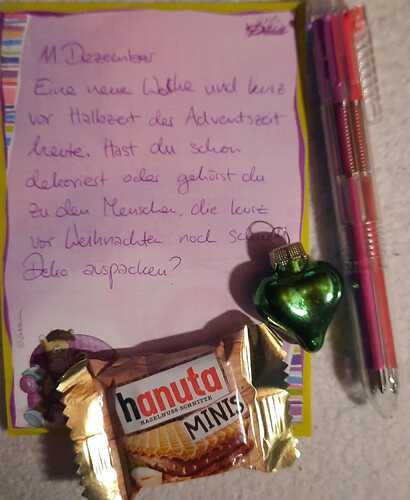 11 Dezember
Eine neue Woche und kurz
vor Halbzeit der Adventszeit
heute. Hast du schon
dekoriert oder gehörst du
zu den Menschen, die kurz
vor Weihnachten noch schnell
Deko auspacken?
hanuta
HASELNUSS-SCHNITTE
MINIS